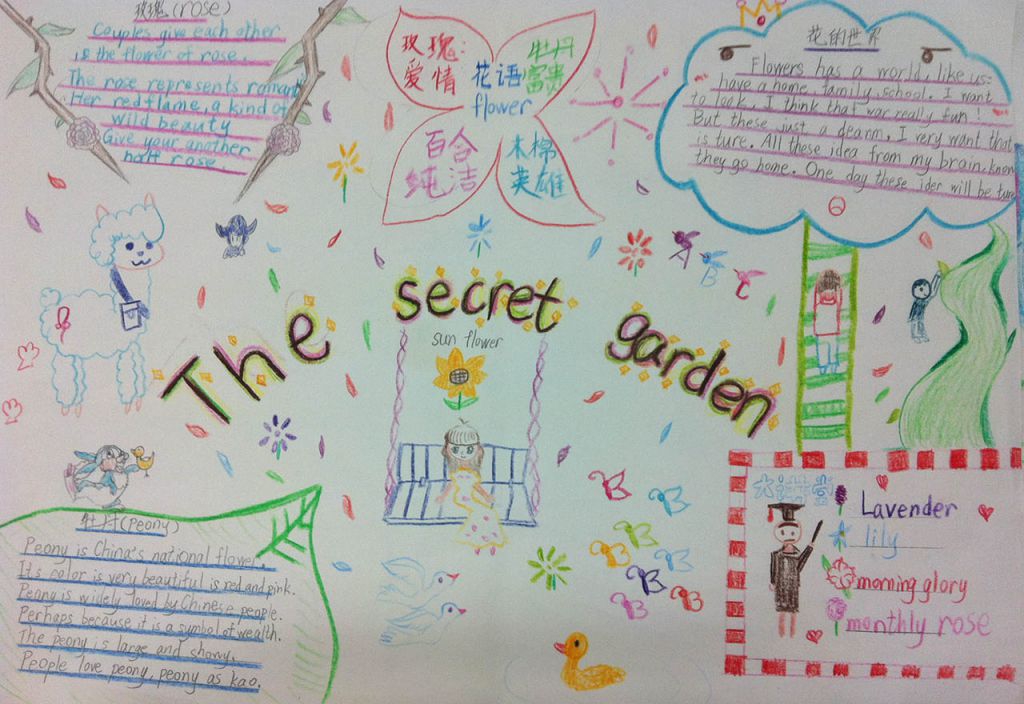 玫瑰(rose)
Couples give each other
is the flower of rose.
The rose represents romant
Her red flame, a kind of
wild beauty
Give your another
half rose
玫瑰:
爱情
牡丹
富贵
花语
flower
百合
纯洁
木棉
英雄
花的世界
Flowers has a world, like us:
have a home, family, school. I want
to look, I think that war really fun!
But these just a dearm, I very want that
is ture. All these idea from my brain. know
they go home. One day these ider will be ture
The secret garden
sun flower
牡丹(Peony)
Peony is China's national flower.
It's color is very beautiful is red and pink.
Peony is widely loved by Chinese people.
Perhaps because it is a symbol of wealth.
The peony is large and showy.
People love peony, peony as kao.
大讲堂
Lavender
lily
morning glory
monthly rose